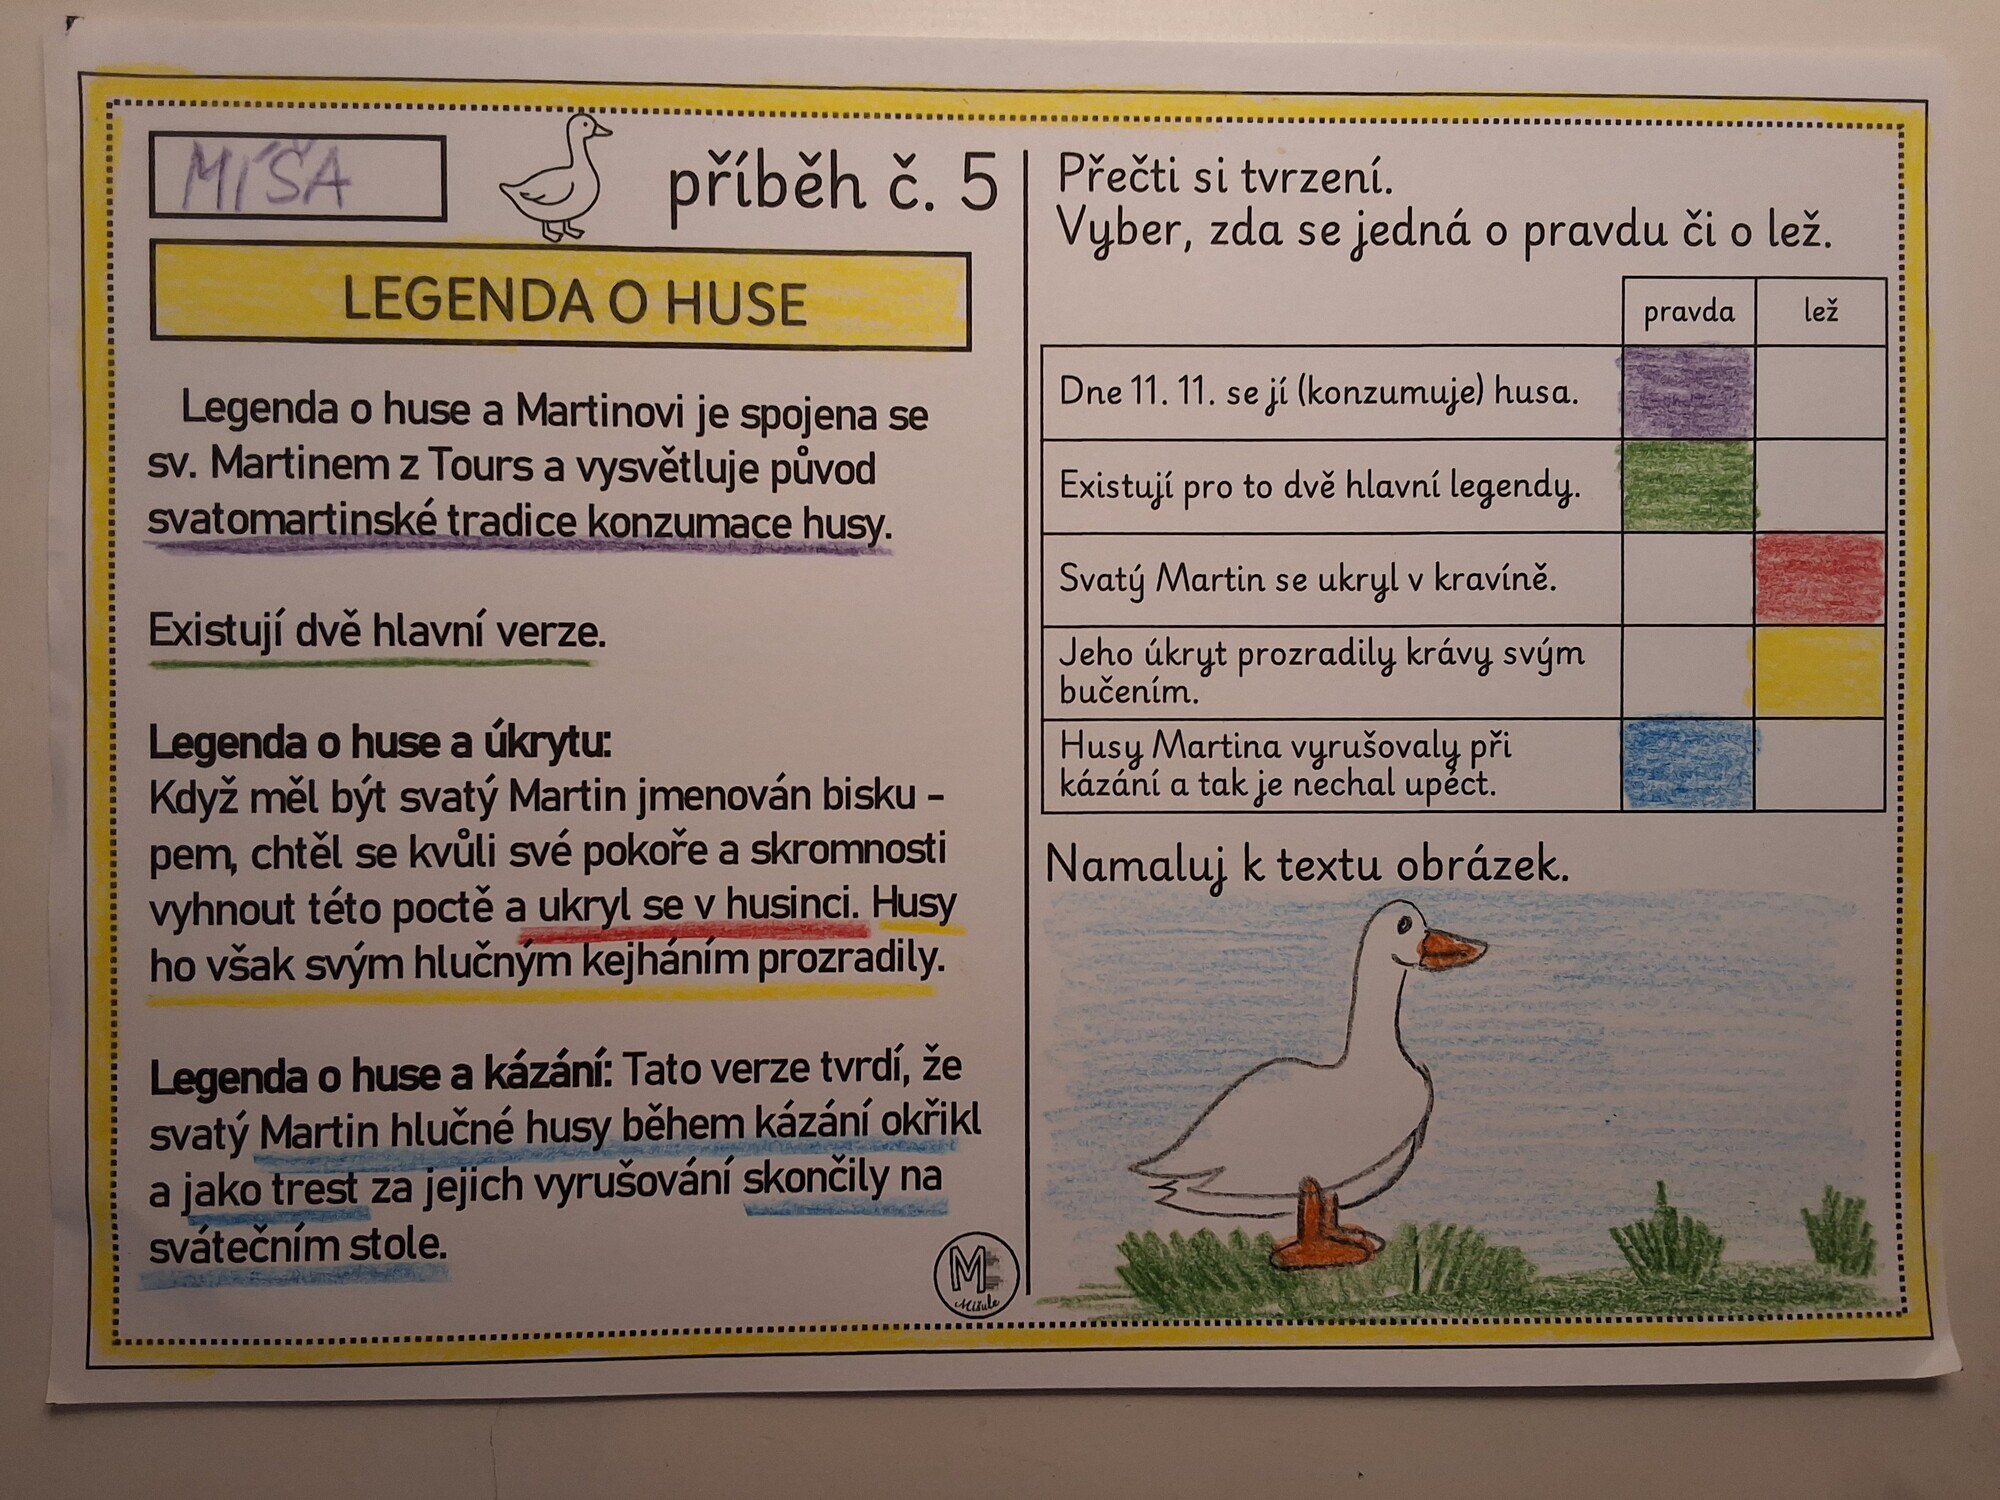 MÍŠA
příběh č. 5
LEGENDA O HUSE
Legenda o huse a Martinovi je spojena se
sv. Martinem z Tours a vysvětluje původ
svatomartinské tradice konzumace husy.
Existují dvě hlavní verze.
Legenda o huse a úkrytu:
Když měl být svatý Martin jmenován bisku -
pem, chtěl se kvůli své pokoře a skromnosti
vyhnout této poctě a ukryl se v husinci. Husy
ho však svým hlučným kejháním prozradily.
Legenda o huse a kázání: Tato verze tvrdí, že
svatý Martin hlučné husy během kázání okřikl
a jako trest za jejich vyrušování skončily na
svátečním stole.
M
Mišule
Přečti si tvrzení.
Vyber, zda se jedná o pravdu či o lež.
pravda lež
Dne 11. 11. se jí (konzumuje) husa.
Existují pro to dvě hlavní legendy.
Svatý Martin se ukryl v kravíně.
Jeho úkryt prozradily krávy svým
bučením.
Husy Martina vyrušovaly při
kázání a tak je nechal upéct.
Namaluj k textu obrázek.